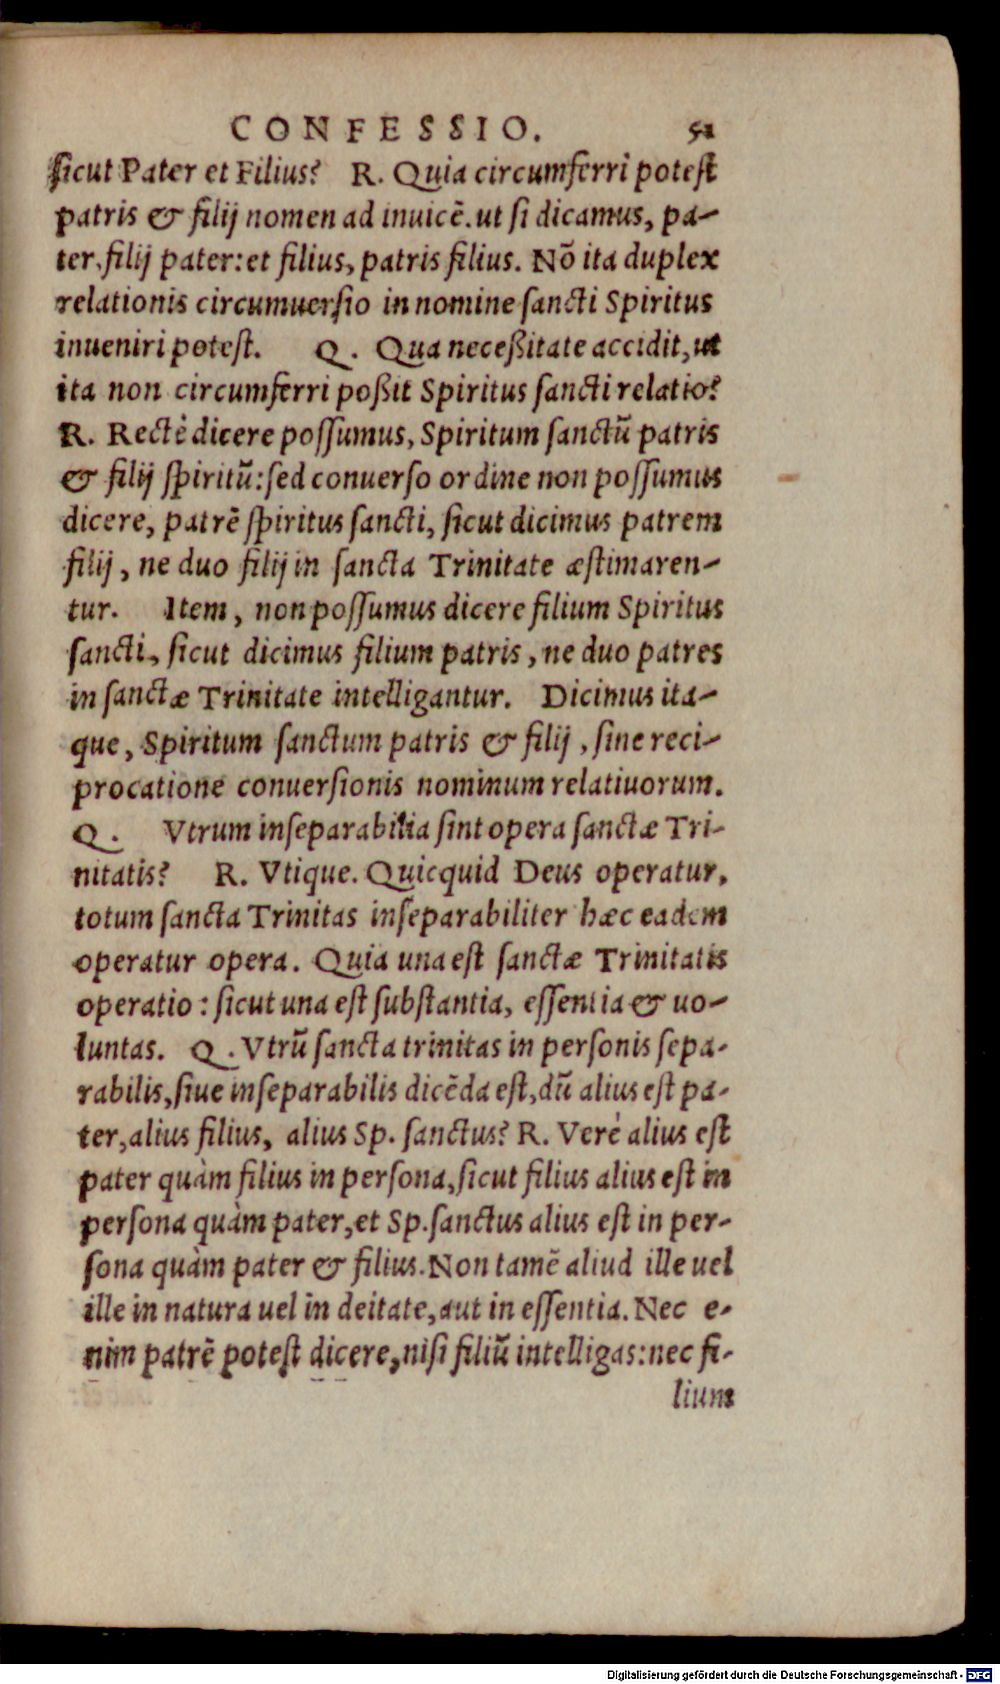 CONFESSIO. 52
sicut Pater et Filius? R. Quia circumferri potest
patris & filij nomen ad inuicē. ut si dicamus, pa-
ter, filij pater: et filius, patris filius. Nō ita duplex
relationis circumuersio in nomine sancti Spiritus
inueniri potest. Q. Qua neceßitate accidit, ut
ita non circumferri poßit Spiritus sancti relatio?
R. Rectè dicere possumus, Spiritum sanctū patris
& filij spiritū: sed conuerso ordine non possumus
dicere, patrē spiritus sancti, sicut dicimus patrem
filij, ne duo filij in sancta Trinitate æstimaren-
tur. Item, non possumus dicere filium Spiritus
sancti, sicut dicimus filium patris, ne duo patres
in sanctæ Trinitate intelligantur. Dicimus ita-
que, Spiritum sanctum patris & filij, sine reci-
procatione conuersionis nominum relatiuorum.
Q. Vtrum inseparabilia sint opera sanctæ Tri-
nitatis? R. Vtique. Quicquid Deus operatur,
totum sancta Trinitas inseparabiliter hæc eadem
operatur opera. Quia una est sanctæ Trinitatis
operatio: sicut una est substantia, essentia & uo-
luntas. Q. Vtrū sancta trinitas in personis sepa-
rabilis, siue inseparabilis dicēda est, dū alius est pa-
ter, alius filius, alius Sp. sanctus? R. Verè alius est
pater quàm filius in persona, sicut filius alius est in
persona quàm pater, et Sp. sanctus alius est in per-
sona quàm pater & filius. Non tamē aliud ille uel
ille in natura uel in deitate, aut in essentia. Nec e-
nim patrē potest dicere, nisi filiū intelligas: nec fi-
lium
Digitalisierung gefördert durch die Deutsche Forschungsgemeinschaft - DFG